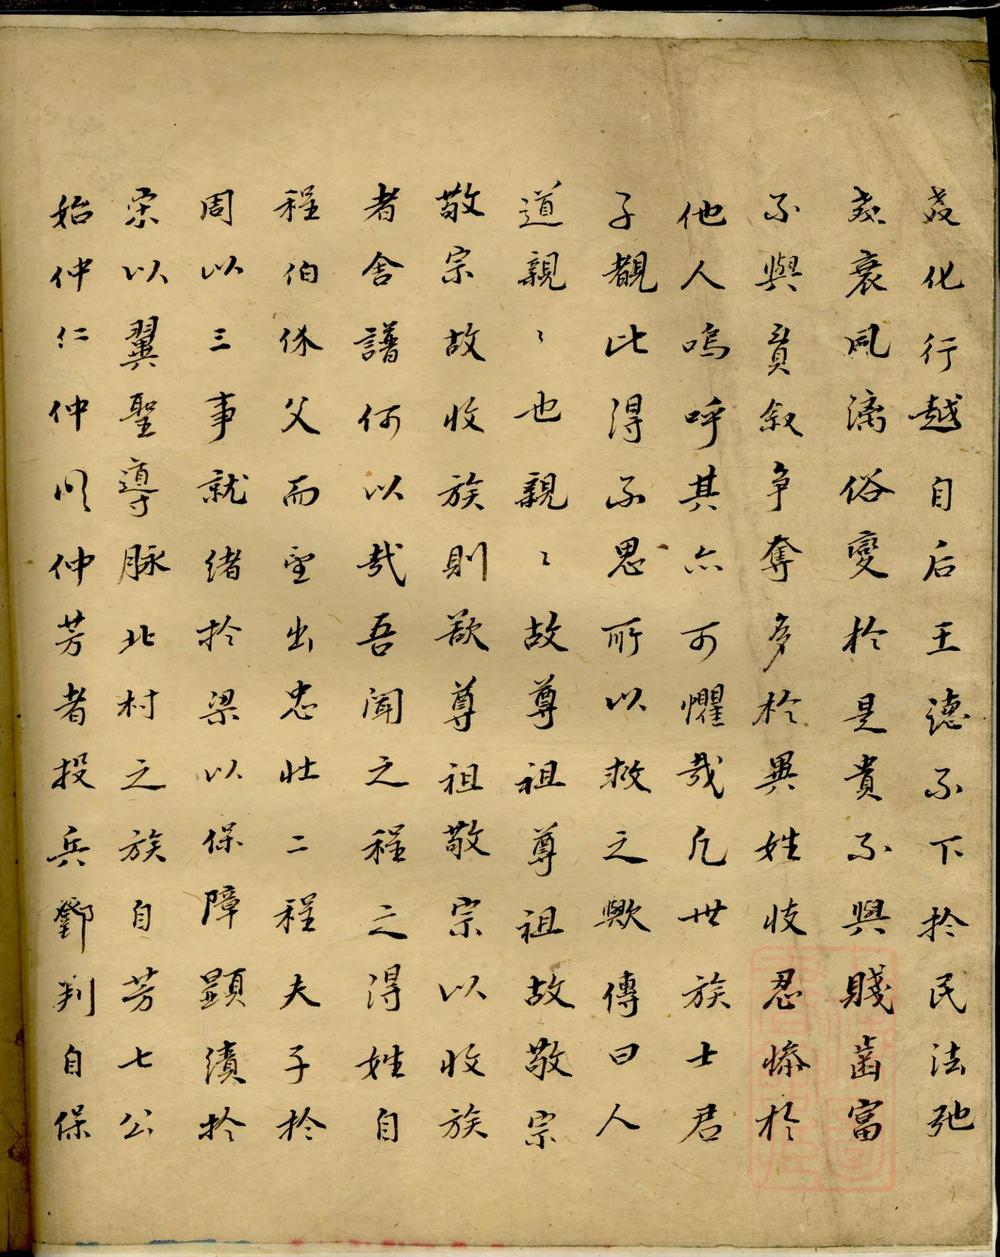 教化行越自后王德不下於民法弛
教衰風漓俗變於是貴不與賤齒富
不與貧叙争奪多於異姓忮忍慘於
他人嗚呼其亦可懼哉凡世族士君
子覩此得不思所以救之歟傳曰人
道親〻也親〻故尊祖尊祖故敬宗
敬宗故收族則欲尊祖敬宗以收族
者舍譜何以哉吾聞之程之得姓自
程伯休父而望出忠壮二程夫子於
周以三事就緒於梁以保障顕績於
宋以翼聖導脉北村之族自芳七公
始仲仁仲明仲芳者投兵鄧判自保